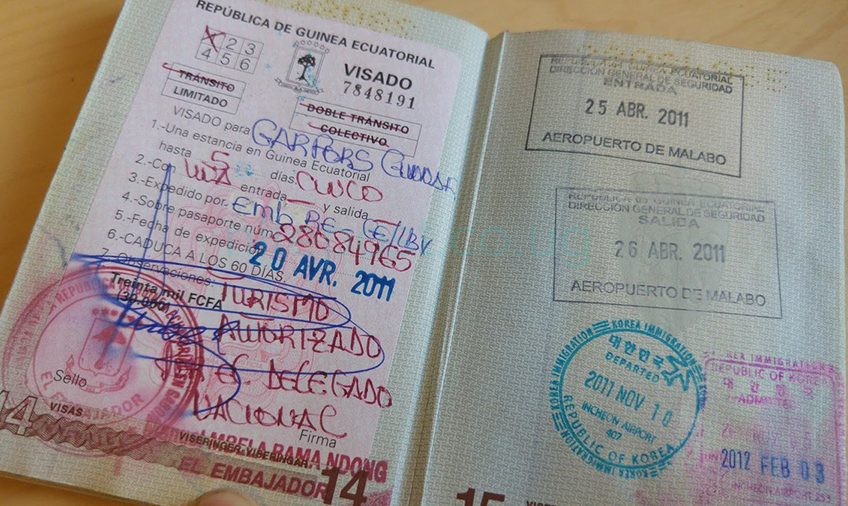 REPÚBLICA DE GUINEA ECUATORIAL
X 2 3
4 5 6
VISADO
7848191
TRÁNSITO
LIMITADO
DOBLE TRÁNSITO
COLECTIVO
VISADO para GARFORS GUNNAR
1.-Una estancia en Guinea Ecuatorial
hasta 5 días CINCO
2.-Con UNA entrada y salida
3.-Expedido por Emb RE. GE/LBV
4.-Sobre pasaporte núm. 28084965
5.-Fecha de expedición 20 AVR. 2011
6.-CADUCA A LOS 60 DÍAS.
7.-Observaciones: TURISMO
Treinta mil FCFA
(30.000)
AUTORIZADO
DELEGADO
NACIONAL
Sello
Firma
REPUBLICA
EL EMBAJADOR
MBELA BAMA NDONG
EL EMBAJADOR
14
VISAS
VISERINGER-VISERINGAR
14
DIRECCION GENERAL DE SEGURIDAD
ENTRADA
25 ABR. 2011
AEROPUERTO DE MALABO
DIRECCION GENERAL DE SEGURIDAD
SALIDA
26 ABR. 2011
AEROPUERTO DE MALABO
KOREA IMMIGRATION
대한민국
DEPARTED
2011 NOV 10
INCHEON AIRPORT
407
REPUBLIC OF KOREA
KOREA IMMIGRATION
REPUBLIC OF KOREA
대한민국
ADMITTED
2012 FEB 03
INCHEON AIRPORT
15